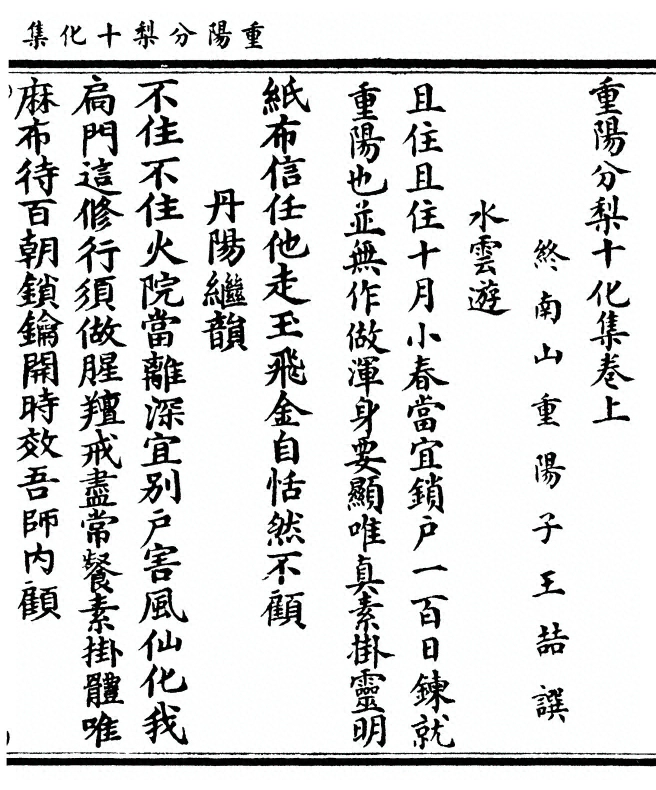 重陽分梨十化集
重陽分梨十化集卷上
終南山重陽子王嚞譔
水雲遊
且住且住十月小春當宜鎖戶一百日鍊就
重陽也並無作做渾身要顯唯真素掛靈明
紙布信任他走玉飛金自恬然不顧
丹陽繼韻
不住不住火院當離深宜別戶害風仙化我
扄門這修行須做腥羶戒盡常餐素掛體唯
麻布待百朝鎖鑰開時效吾師內顧